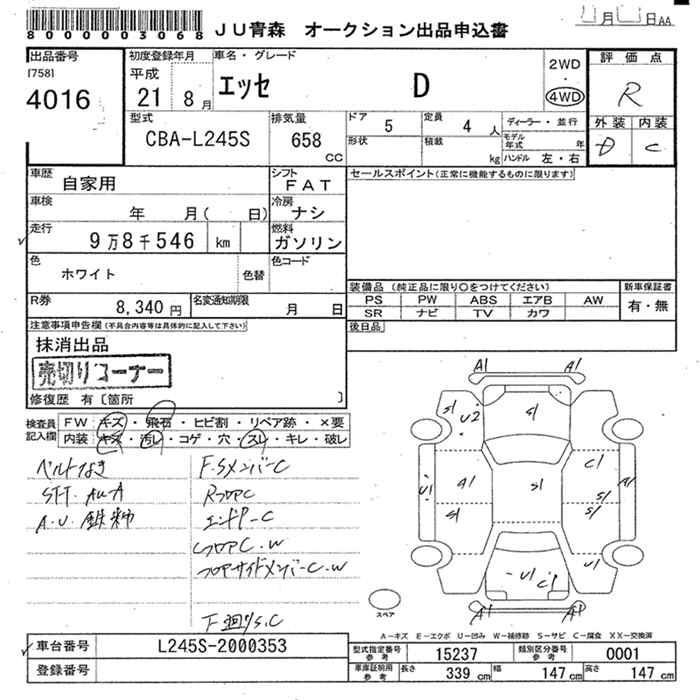 8000000003068 JU青森 オークション出品申込書 月 日AA
出品番号 初度登録年月 車名・グレード 2WD 評価点
(758) 平成 エッセ D ・ R
4016 21 8月 4WD 外装 内装
型式 排気量 ドア 5 定員 4 人 ディーラー・並行 D C
CBA-L245S 658 CC 形状 積載 kg モデル年式 年
ハンドル 左・右
車歴 自家用 シフト FAT セールスポイント(正常に機能するものに限ります)
車検 年 月( 日) 冷房 ナシ
走行 9万8千546 km 燃料 ガソリン
色 ホワイト 色替 色コード
装備品 (純正品に限り○をつけてください) 新車保証書
PS PW ABS エアB AW 有・無
SR ナビ TV カワ
R券 8,340円 名変通知期限 月 日
後日品
注意事項申告欄(不具合内容等は具体的に記入して下さい)
抹消出品
売切りコーナー
修復歴 有〔箇所 〕
検査員記入欄 FW キズ・飛石・ヒビ割・リペア跡・×要
内装 キズ・汚レ・コゲ・穴・スレ・キレ・破レ
ベルトなき F.SメンバーC
STT AuA RフロアC
A.U. 鉄粉 エンドP-C
フロアC.W
フロアサイドメンバーC.W
下廻りS.C
A1 A1
S1 U2 S1
C1
U1 A1 S1 S1 A1
S1 S1
U1 C1 U1
A1 A1
スペア
A-キズ E-エクボ U-凹み W-補修跡 S-サビ C-腐食 XX-交換済
車台番号 L245S-2000353
登録番号
型式指定番号 参考 15237 類別区分番号 参考 0001
車庫証明用 参考 長さ 339 cm 幅 147 cm 高さ 147 cm